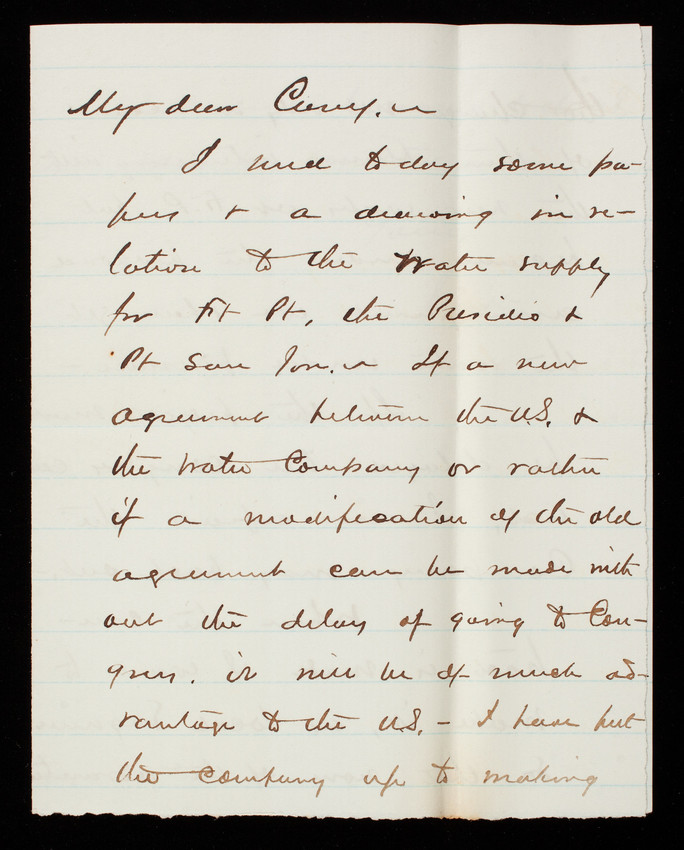 My dear Casey. –
I send today some pa-
pers & a drawing in re-
lation to the Water supply
for Ft Pt, the Presidio &
Pt San Jose. – If a new
agreement between the U.S. &
the Water Company or rather
if a modification of the old
agreement can be made with
out the delay of going to Con-
gress. it will be of much ad-
vantage to the U.S. – I have put
the company up to making